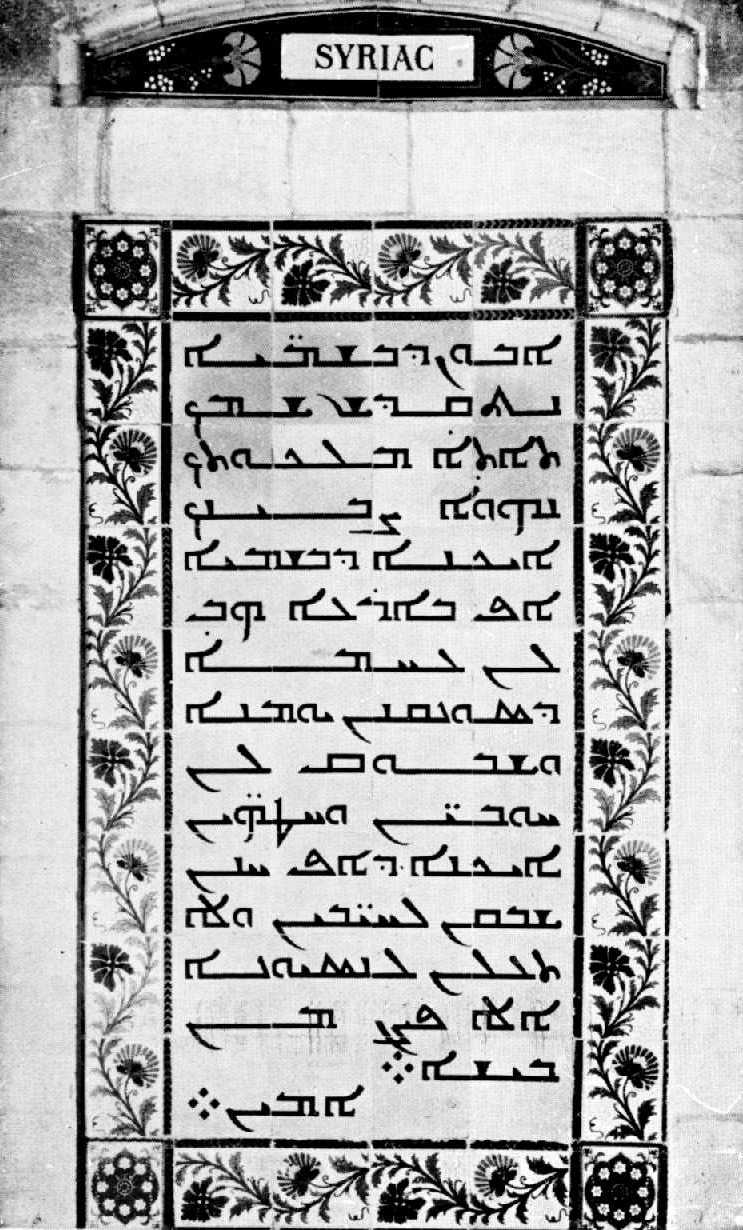 SYRIAC
ܐܒܘܢ ܕܒܫܡܝܐ
ܢܬܩܕܫ ܫܡܟ
ܬܐܬܐ ܡܠܟܘܬܟ
ܢܗܘܐ ܨܒܝܢܟ
ܐܝܟܢܐ ܕܒܫܡܝܐ
ܐܦ ܒܐܪܥܐ ܗܒ
ܠܢ ܠܚܡܐ
ܕܣܘܢܩܢܢ ܝܘܡܢܐ
ܘܫܒܘܩ ܠܢ
ܚܘܒܝ̈ܢ ܘܚܛܗ̈ܝܢ
ܐܝܟܢܐ ܕܐܦ ܚܢܢ
ܫܒܩܢ ܠܚܝ̈ܒܝܢ ܘܠܐ
ܬܥܠܢ ܠܢܣܝܘܢܐ
ܐܠܐ ܦܨܢ ܡܢ
ܒܝܫܐ܀
ܐܡܝܢ܀